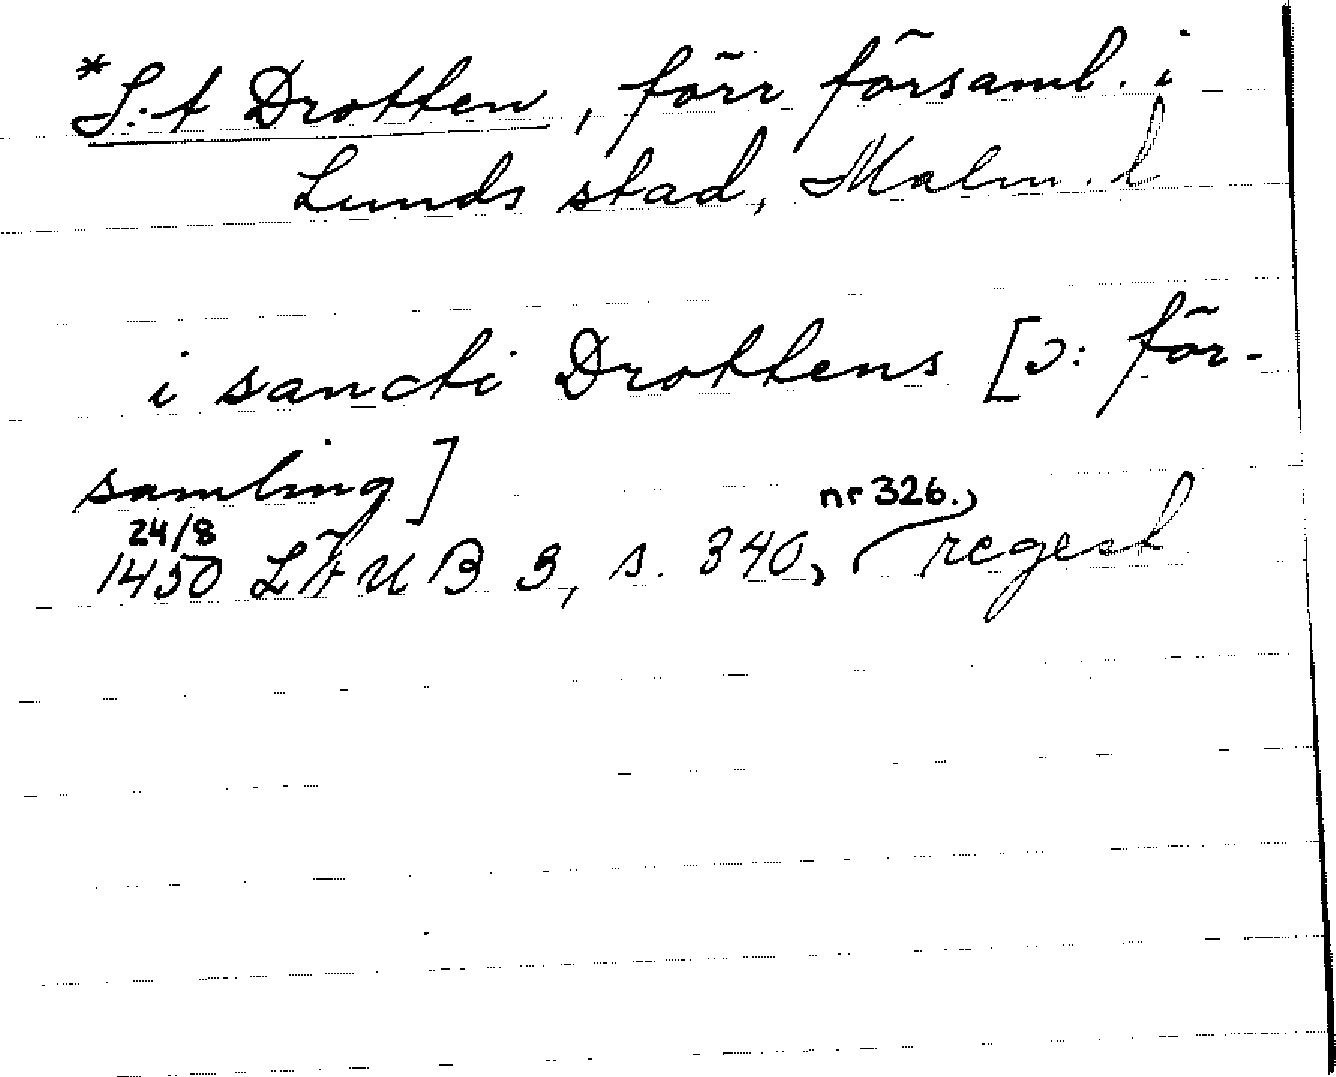 *S:t Drotten, förr församl. i
Lunds stad, Malm. l
i sancti Drottens [ɔ: för-
samling]
24/8 nr 326.
1450 LÄUB 3, s. 340, regest